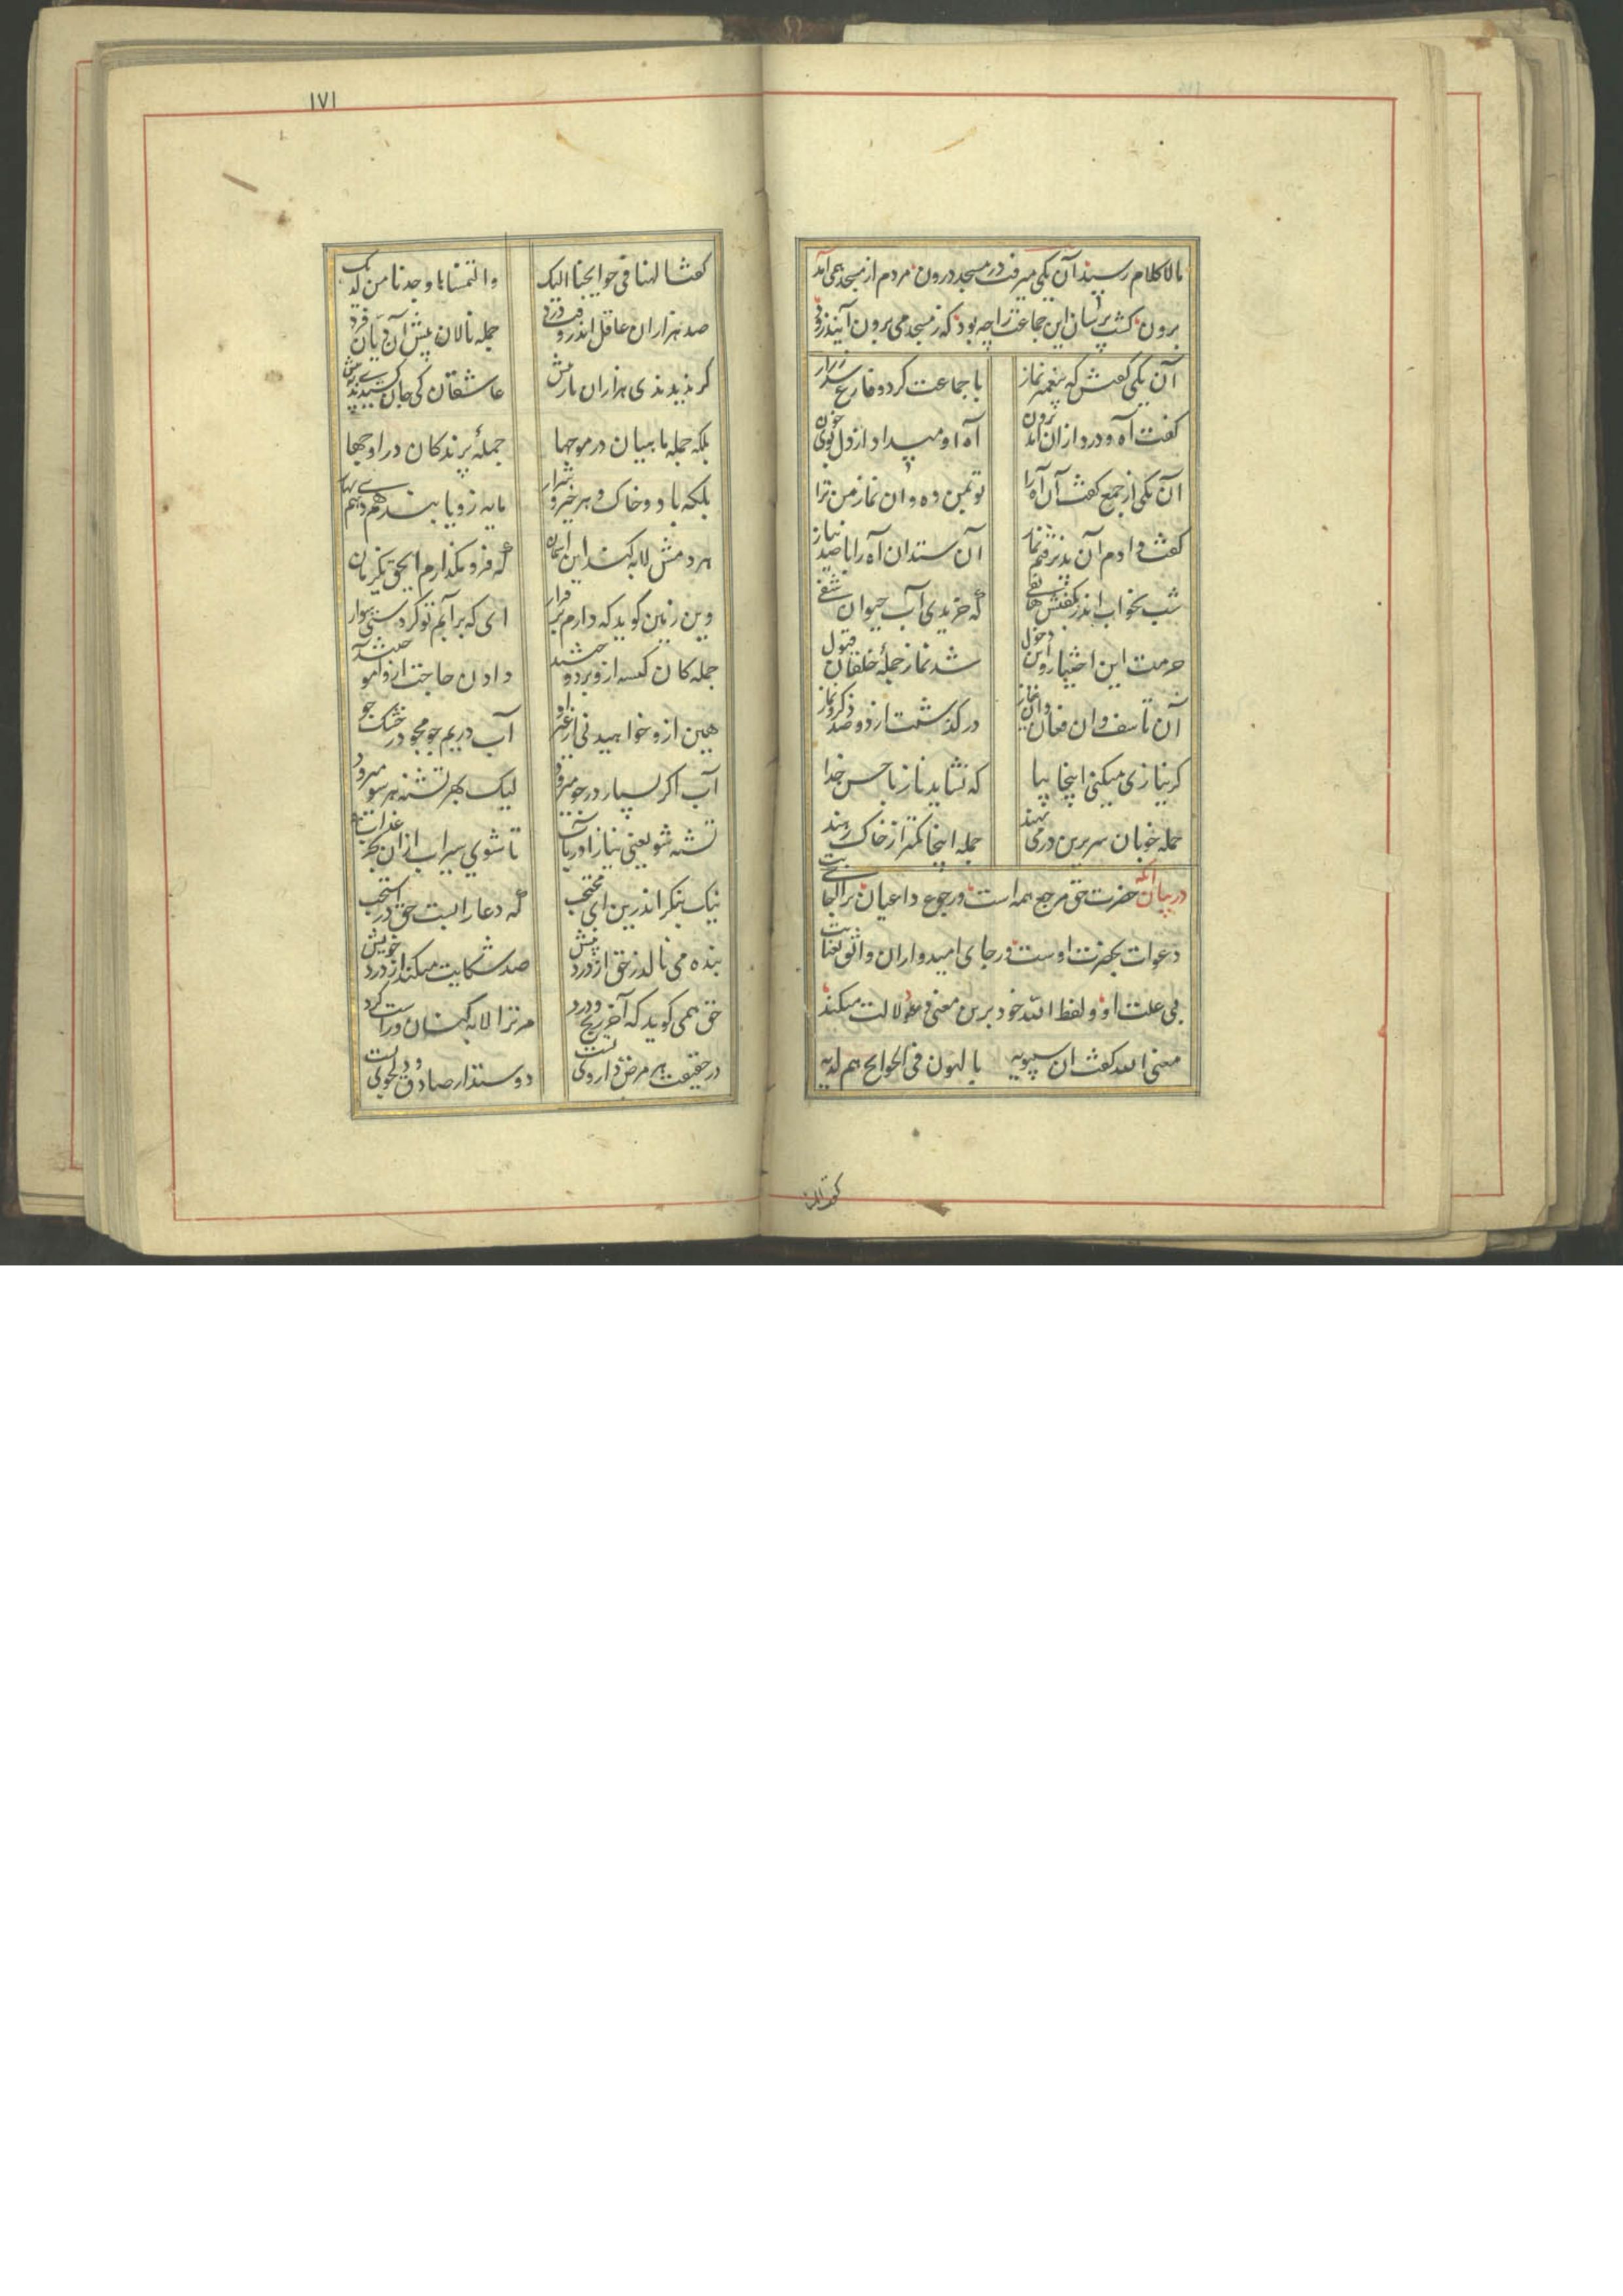 بالا کلام رسید آن یکی میرفت در مسجد درون مردم از مسجد همی آمد
برون گشت پرسان این جماعت را چه بود که ز مسجد می برون آیند زود
آن یکی گفتش که پیغمبر نماز با جماعت کرد و فارغ شد ز راز
گفت آه و درد از ان آمد برون آه او میداد از دل بوی خون
آن یکی از جمع گفت آن آه را تو بمن ده وان نماز من ترا
گفت دادم آن پذیرفتم نماز آن ستد آن آه را با صد نیاز
شب بخواب اندر بگفتش هاتفی که خریدی آب حیوان شفی
حرمت این اختیار و این دخول شد نماز جملهٔ خلقان قبول
آن تاسف وان فغان وان نیاز درگذشت از دو صد ذکر و نماز
گر نیازی میکنی اینجا بیا که نشاید ناز با حسن خدا
جمله خوبان سر برین در می نهند جمله اینجا کمتر از خاک رهند
در بیان آنکه حضرت حق مرجع همه است و رجوع داعیان برای اجابت
دعوات بحضرت اوست و رجای امیدواران واثق بعنایت
بی علت او و لفظ الله خود برین معنی دلالت میکند
معنی الله گفت آن سیبویه یا لهون فی الحوایج هم لدیه
گفت الهنا
۱۷۱
گفت الهنا فی حوایجنا الیک والتمسنا ها وجدنا من لدیک
صد هزاران عاقل اندر وقت درد جمله نالان پیش آن دیان فرد
گر ندیدندی هزاران بار بیش عاقلان کی جان کشیدندیش پیش
بلکه جمله ماهیان در موجها جملهٔ پرندگان در اوجها
بلکه باد و خاک و هر خیر و شرار مایه زو یابند
هر دمش لابه کند این آسمان که فرو مگذارم ای حق یک زمان
وین زمین گوید که دارم بر قرار ای که بر آبم تو کردستی سوار
جمله کان کیسه ازو بر دوختند دادن حاجت ازو آموختند
هین ازو خواهید نی از غیر او آب در یم جو مجو در خشک جو
آب اگر بسیار در جو میرود لیک بهر تشنه هر سو میرود
تشنه شو یعنی نیاز آور بآب تا شوی سیراب ازان بحر
نیک بنگر اندرین ای محتجب که دعا را بست حق در استجب
بنده می نالد ز حق از درد پیش صد شکایت میکند از درد خویش
حق همی گوید که آخر رنج و درد مر ترا لابه کنان و راست کرد
در حقیقت هر مرض داروی تست دوستدار صادق و دلجوی تست